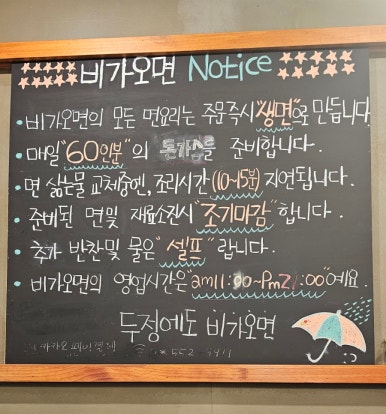 비가오면 Notice
• 비가오면의 모든 면요리는 주문즉시 "생면"으로 만듭니다
• 매일 "60인분"의 돈가스를 준비합니다.
• 면 삶는물 교체중엔, 조리시간 (10~15분) 지연됩니다.
• 준비된 면및 재료소진시 "조기마감" 합니다.
• 추가 반찬및 물은 "셀프" 랍니다.
• 비가오면의 영업시간은 "am11:00~Pm21:00"예요.
두정에도 비가오면
552